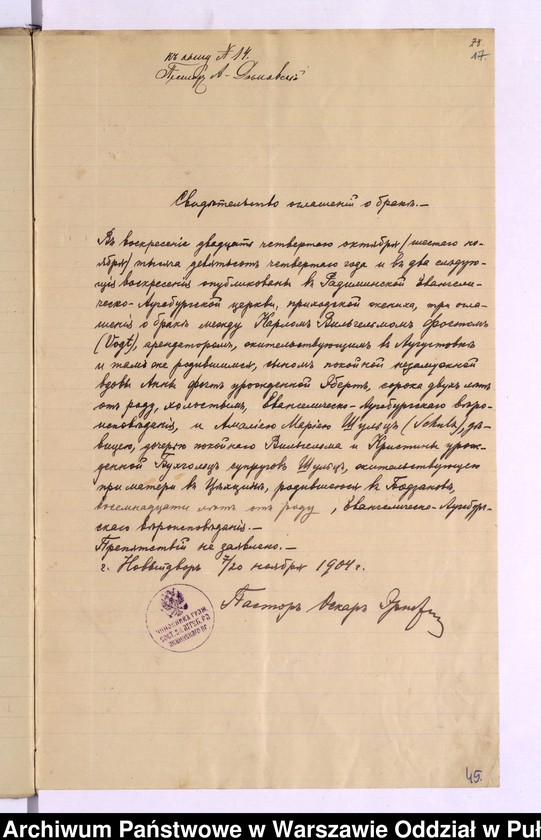 къ акту № 14.
Пасторъ А.
78
17
Свидѣтельство оглашенiй о бракѣ.—
Въ воскресенiе двадцать четвертаго октября (шестого но-
ября) тысяча девятьсотъ четвертаго года и въ два слѣдую-
щiя воскресенiя опубликованы въ Радиминской Евангели-
ческо-Аугсбургской церкви, приходской жениха, три огла-
шенiя о бракѣ между Карломъ Вильгельмомъ Фогтомъ
(Vogt), арендаторомъ, жительствующимъ въ Августовкѣ
и тамъ же родившимся, сыномъ покойной незамужной
вдовы Анны Фогтъ урожденной, сорока двухъ лѣтъ
отъ роду, холостымъ, Евангелическо-Аугсбургскаго вѣро-
исповѣданiя, и Амалiею Марiею Шульцъ (Schulz), дѣ-
вицею, дочерью покойнаго Вильгельма и Кристины урож-
денной Бухгольцъ супруговъ Шульцъ, жительствующею
при матери въ, родившеюся въ
восемнадцати лѣтъ отъ роду, Евангелическо-Аугсбург-
скаго вѣроисповѣданiя.—
Препятствiй не заявлено.—
г. Новыйдворъ 7/20 ноября 1904 г.
Пасторъ Оскаръ
45.
Archiwum Państwowe w Warszawie Oddział w Puł